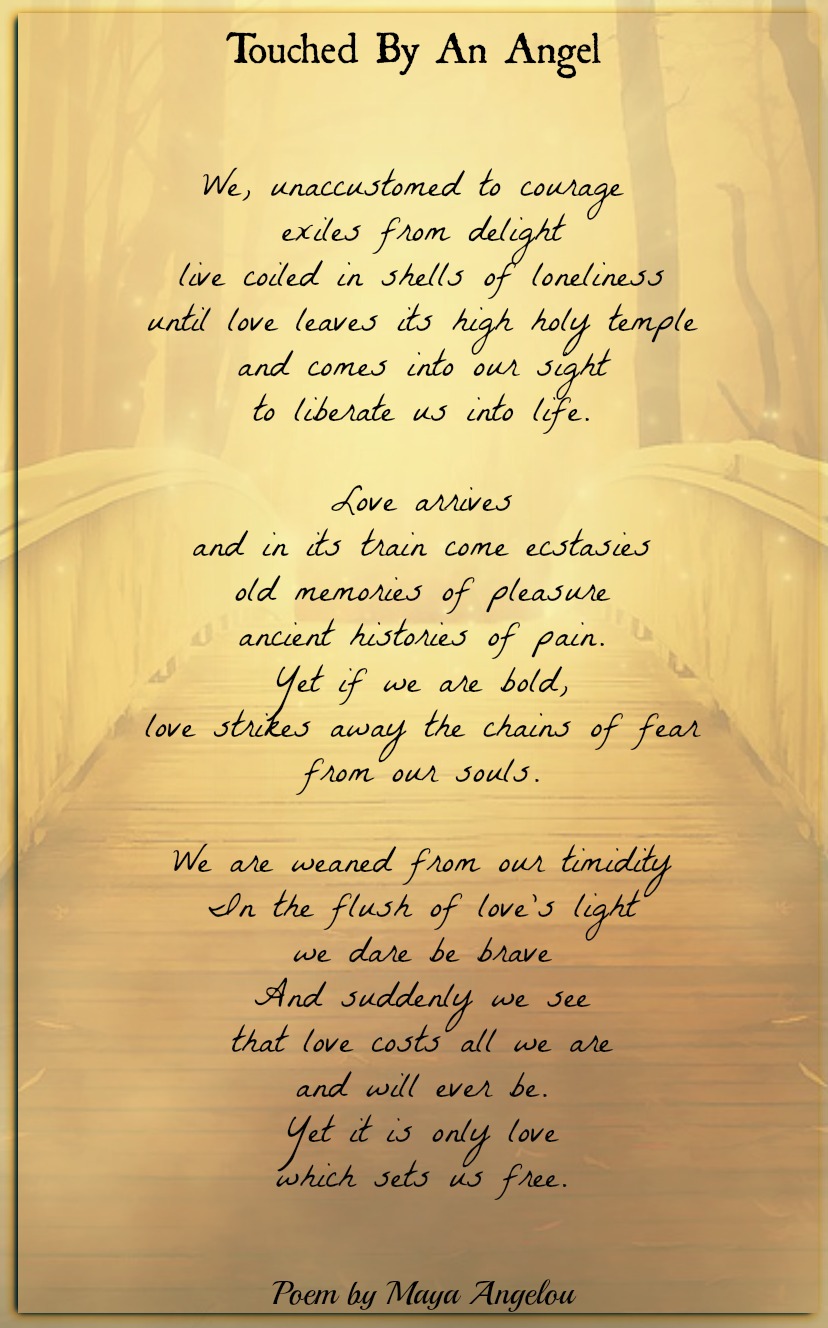 Touched By An Angel
We, unaccustomed to courage
exiles from delight
live coiled in shells of loneliness
until love leaves its high holy temple
and comes into our sight
to liberate us into life.
Love arrives
and in its train come ecstasies
old memories of pleasure
ancient histories of pain.
Yet if we are bold,
love strikes away the chains of fear
from our souls.
We are weaned from our timidity
In the flush of love's light
we dare be brave
And suddenly we see
that love costs all we are
and will ever be.
Yet it is only love
which sets us free.
Poem by Maya Angelou